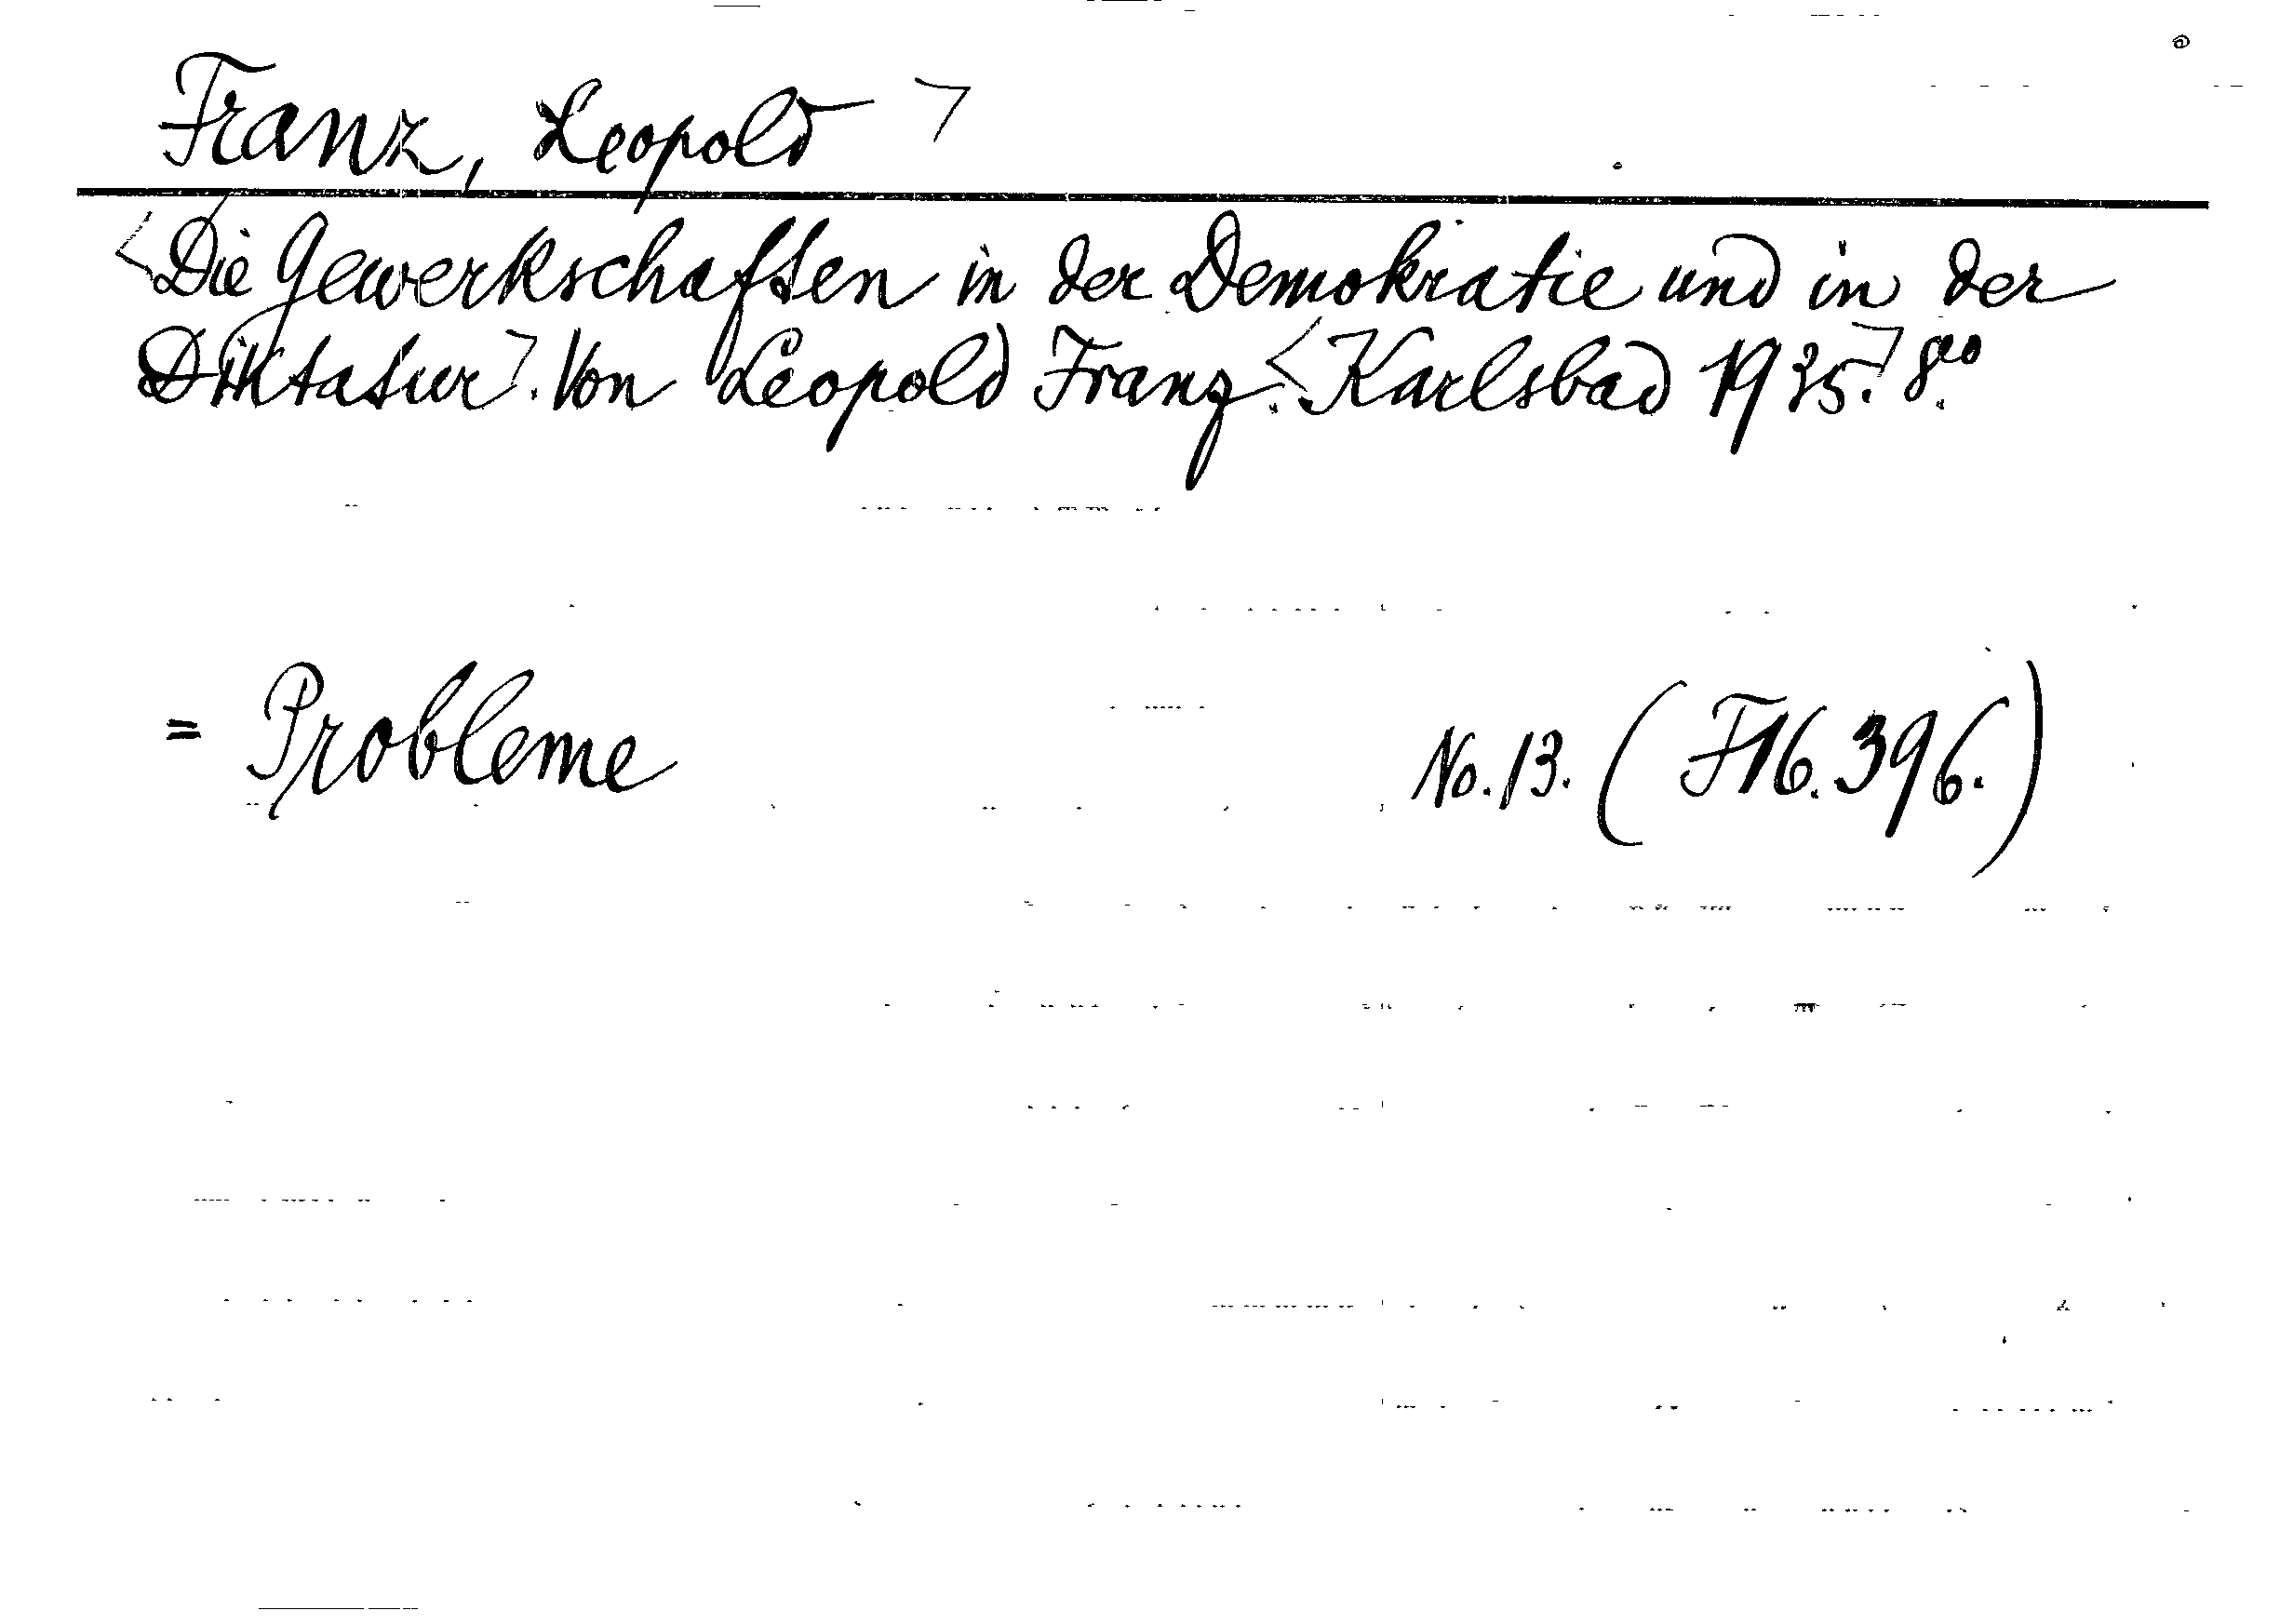 Franz, Leopold >
<Die Gewerkschaften in der Demokratie und in der
Diktatur>. Von Leopold Franz. <Karlsbad 1935.> 8vo.
= Probleme No. 13. (F16.396.)